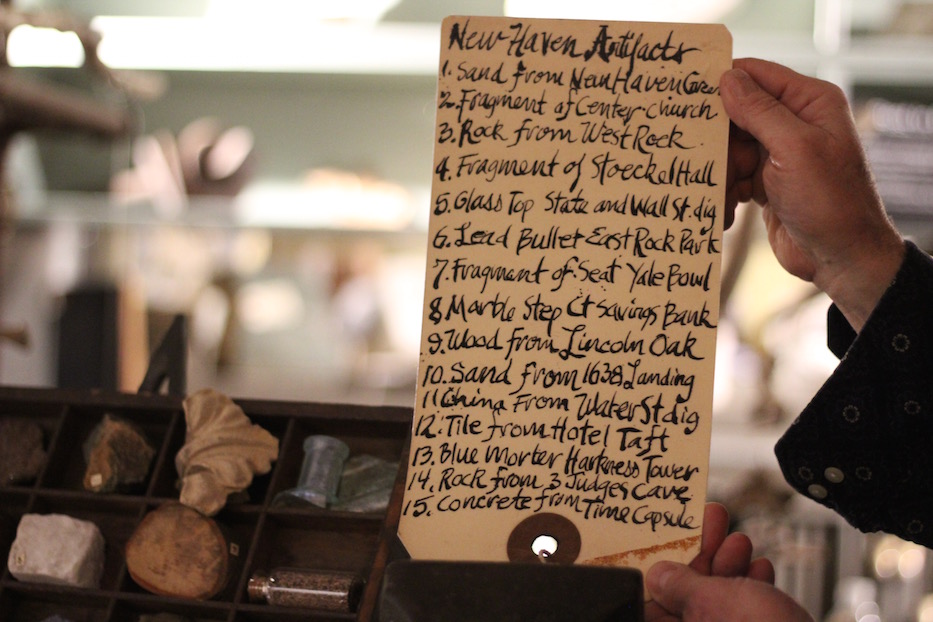 New Haven Artifacts
1. Sand from New Haven Green
2. Fragment of Center Church
3. Rock from West Rock.
4. Fragment of Stoeckel Hall
5. Glass Top State and Wall St. dig
6. Lead Bullet East Rock Park
7. Fragment of Seat Yale Bowl
8 Marble Step Ct Savings Bank
9. Wood from Lincoln Oak
10. Sand from 1638 Landing
11 China From Water St dig
12. Tile from Hotel Taft
13. Blue Morter Harkness Tower
14. Rock from 3 Judges Cave
15. Concrete from Time Capsule